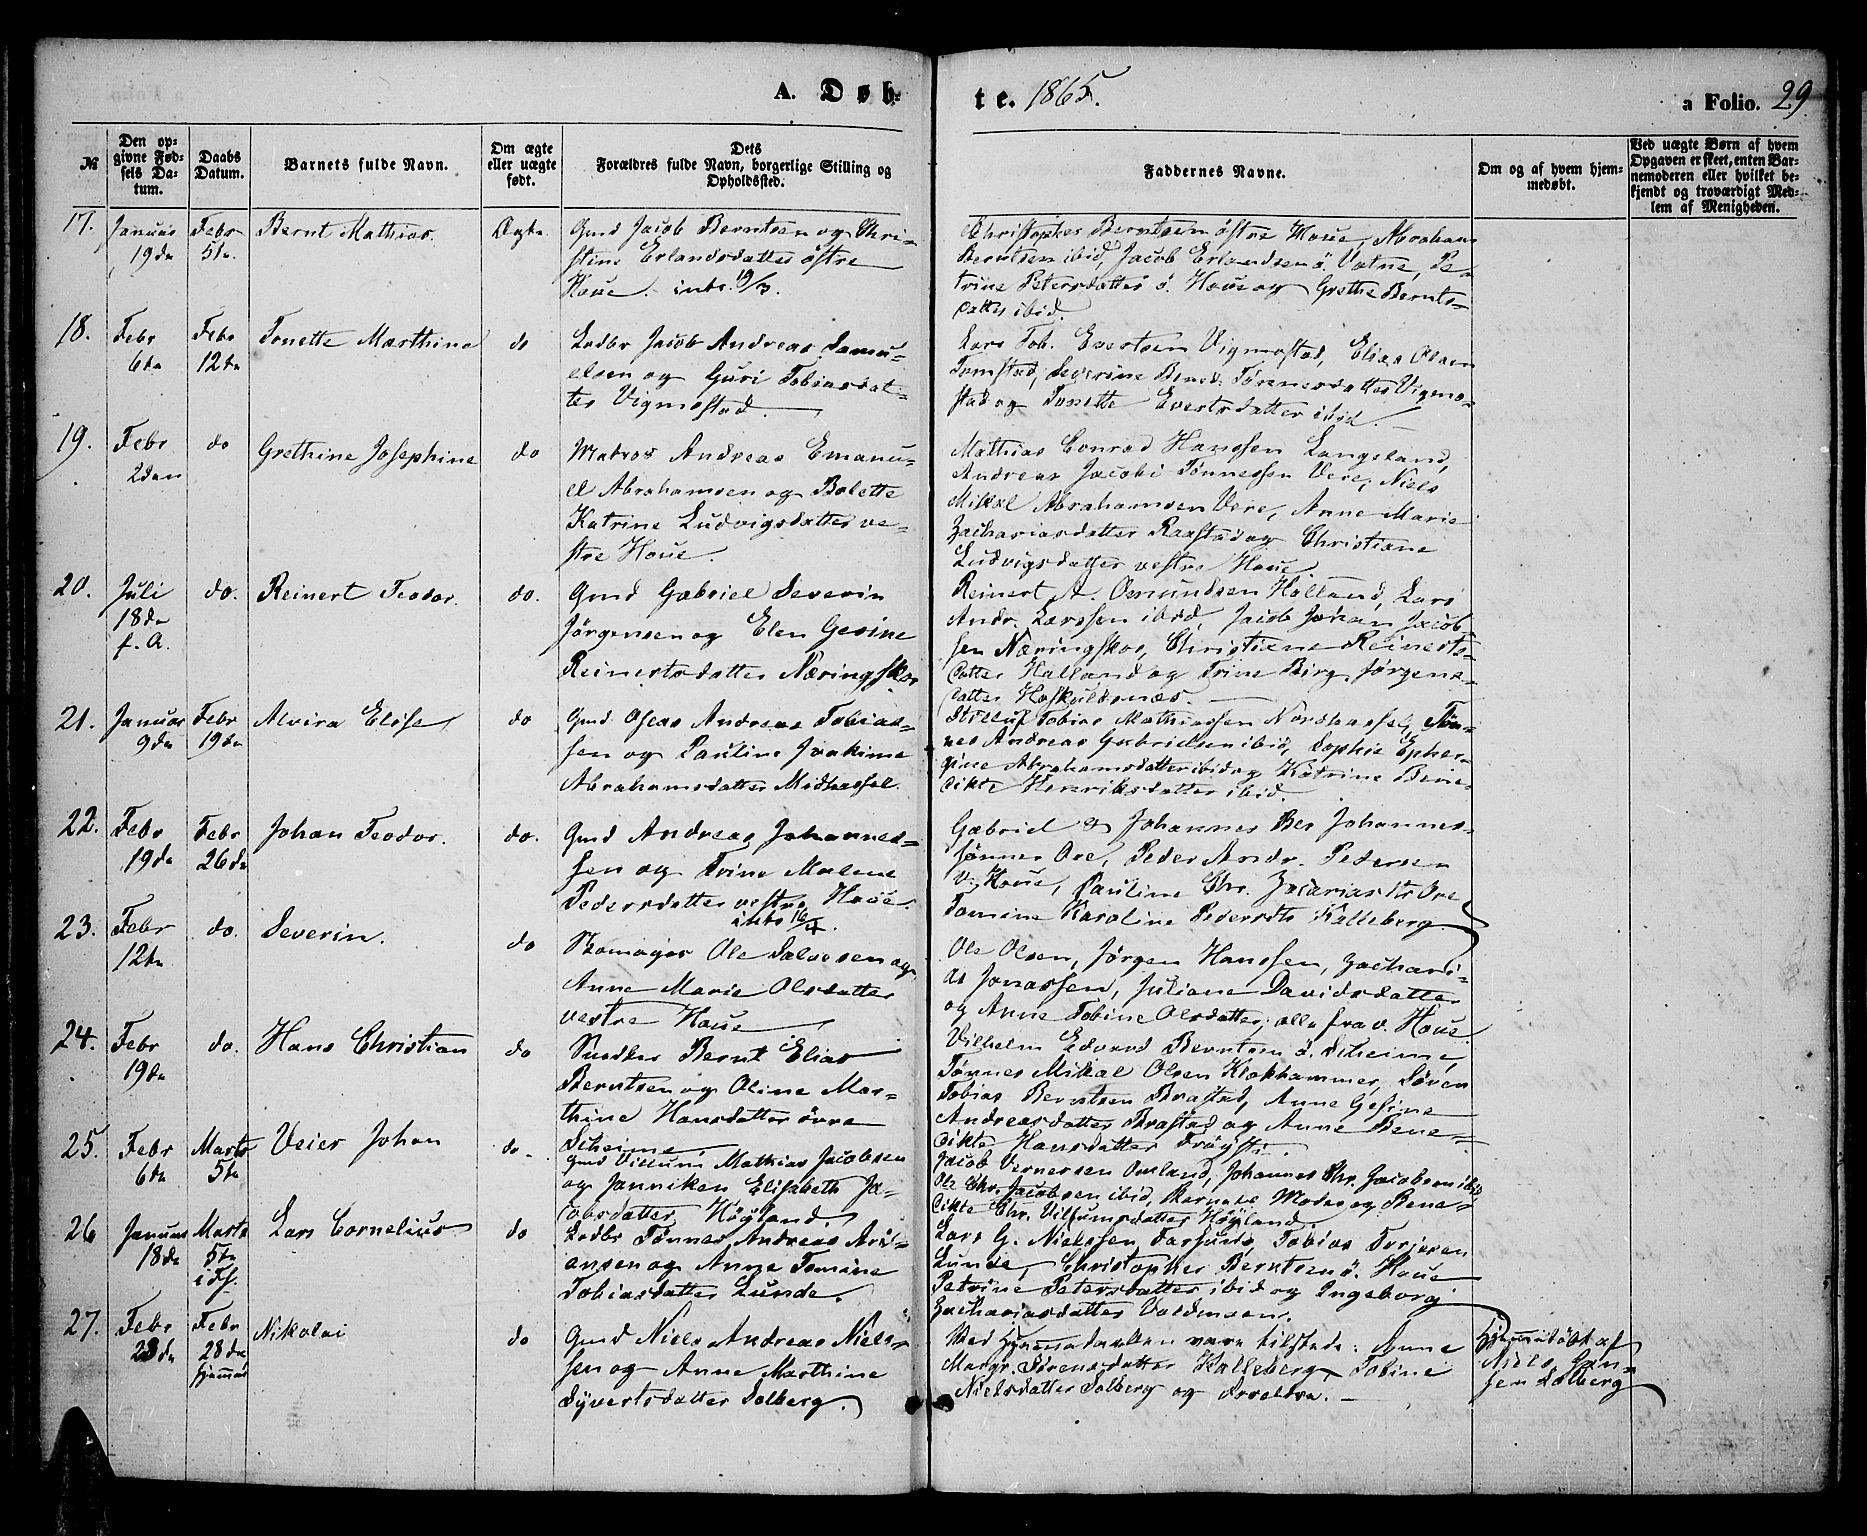 A. Døb-
te. 1865.
a Folio. 29
№
Den op-
givne Fød-
sels Da-
tum.
Daabs
Datum.
Barnets fulde Navn.
Om ægte
eller uægte
født.
Dets
Forældres fulde Navn, borgerlige Stilling og
Opholdssted.
Faddernes Navne.
Om og af hvem hjem-
medøbt.
Ved uægte Børn af hvem
Opgaven er skeet, enten Bar-
nemoderen eller hvilket be-
kjendt og troværdigt Med-
lem af Menigheden.
17. Januar Febr Bernt Mathias. Ægte
19de 5te
Gmd Jacob Berntsen og Chri-
stine Erlandsdatter østre
Houe. intr. 19/3.
Christopher Berntsen østre Houe, Abraham
Berntsen ibid, Jacob Erlandsen ö. Vatne, Pe-
trine Petersdatter ö. Houe og Grethe Bernts-
datter ibid.
18. Febr Febr Tonette Marthine do
6te 12te
Lodbr Jacob Andreas Samu-
elsen og Guri Tobiasdat-
ter Vigmostad.
Lars Tob. Evertsen Vigmostad, Elias Olsen
Tomstad, Severine Bened. Tönnesdatter Vigmo-
stad og Tonette Evertsdatter ibid.
19. Febr do Grethine Josephine do
2den
Matros Andreas Emanu-
el Abrahamsen og Bolette
Katrine Ludvigsdatter ve-
stre Houe.
Mathias Conrad Hanssen Langeland,
Andreas Jacobi Tönnessen Vere, Niels
Mikal Abrahamsen Vere, Anne Marie
Zachariasdatter Raastad og Christiane
Ludvigsdatter vestre Houe
20. Juli do. Reinert Teodor. do.
18de
f. A.
Gmd Gabriel Severin
Jörgensen og Elen Gesine
Reinertsdatter Næringskar
Reinert A. Omundsen Holland, Lars
Andr. Larssen ibid, Jacob Johan Jacob
sen Næringskar, Christiane Reinerts-
datter Halland og Trine Birg. Jörgens-
datter Hoskuldsnæs.
21. Januar Febr Alvira Elise do
9de 19de
Gmd Oseas Andreas Tobias-
sen og Pauline Joakime
Abrahamsdatter Midhassel.
Tobias Mathiassen Nordhassel, Tön-
nes Andreas Gabrielsen ibid, Sophie
Abrahamsdatter ibid og Katrine Bene-
dikte Henriksdatter ibid.
22. Febr Febr Johan Teodor. do.
19de 26de
Gmd Andreas Johannes-
sen og Trine Malene
Pedersdatter vestre Houe.
intr 16/4.
Gabriel & Johannes Ber Johannes-
sönner Ore, Peder Andr. Pedersen
v. Houe, Pauline Chr. Zacariasdtr Ore
Tomine Karoline Pedersdtr Kalleberg
23. Febr do. Severin. do
12te
Skomager Ole Salvesen og
Anne Marie Olsdatter
vestre Houe
Ole Olsen, Jörgen Hanssen, Zachari-
as Jonassen, Juliane Davidsdatter
og Anne Tobine Olsdatter, alle fra v. Houe.
24. Febr do. Hans Christian do
19de
Snedker Bernt Elias
Berntsen og Oline Mar-
thine Hansdatter övre
Sitheime
Vilhelm Edvard Berntsen ö. Sitheime,
Tönnes Mikal Olsen Klokhammer, Sören
Tobias Berntsen Brastad, Anne Gesine
Andreasdatter Brastad og Anne Bene-
dikte Hansdatter
25. Febr Marts Veier Johan do
6te 5te
Gmd Villum Mathias Jacobsen
og Janniken Elisabeth Ja-
cobsdatter Högland.
Jacob Vernersen Omland, Johannes Chr. Jacobsen ibid
Ole Chr. Jacobsen ibid, Barnets Moder og Bene-
dikte Chr. Villumsdatter Högland.
26 Januar Marts Lars Cornelius do
18de 5te
i Fs.
Lodbr Tönnes Andreas Ari-
ansen og Anne Tomine
Tobiasdatter Lunde.
Lars G. Nielssen Farsund, Tobias Torjesen
Lunde, Christopher Berntsen ö. Houe
Petrine Petersdatter ibid og Ingeborg
Zachariasdatter
27. Febr Febr Nikolai do
23de 28de
hjemme
Gmd Niels Andreas Niels-
sen og Anne Marthine
Syvertsdatter Solberg.
Ved Hjemmedaaben vare tilstede: Anne
Margr. Sörensdatter Kalleberg, Tobine
Nielsdatter Solberg og Forældre.
Hjemmedöbt af
Niels
sen Solberg